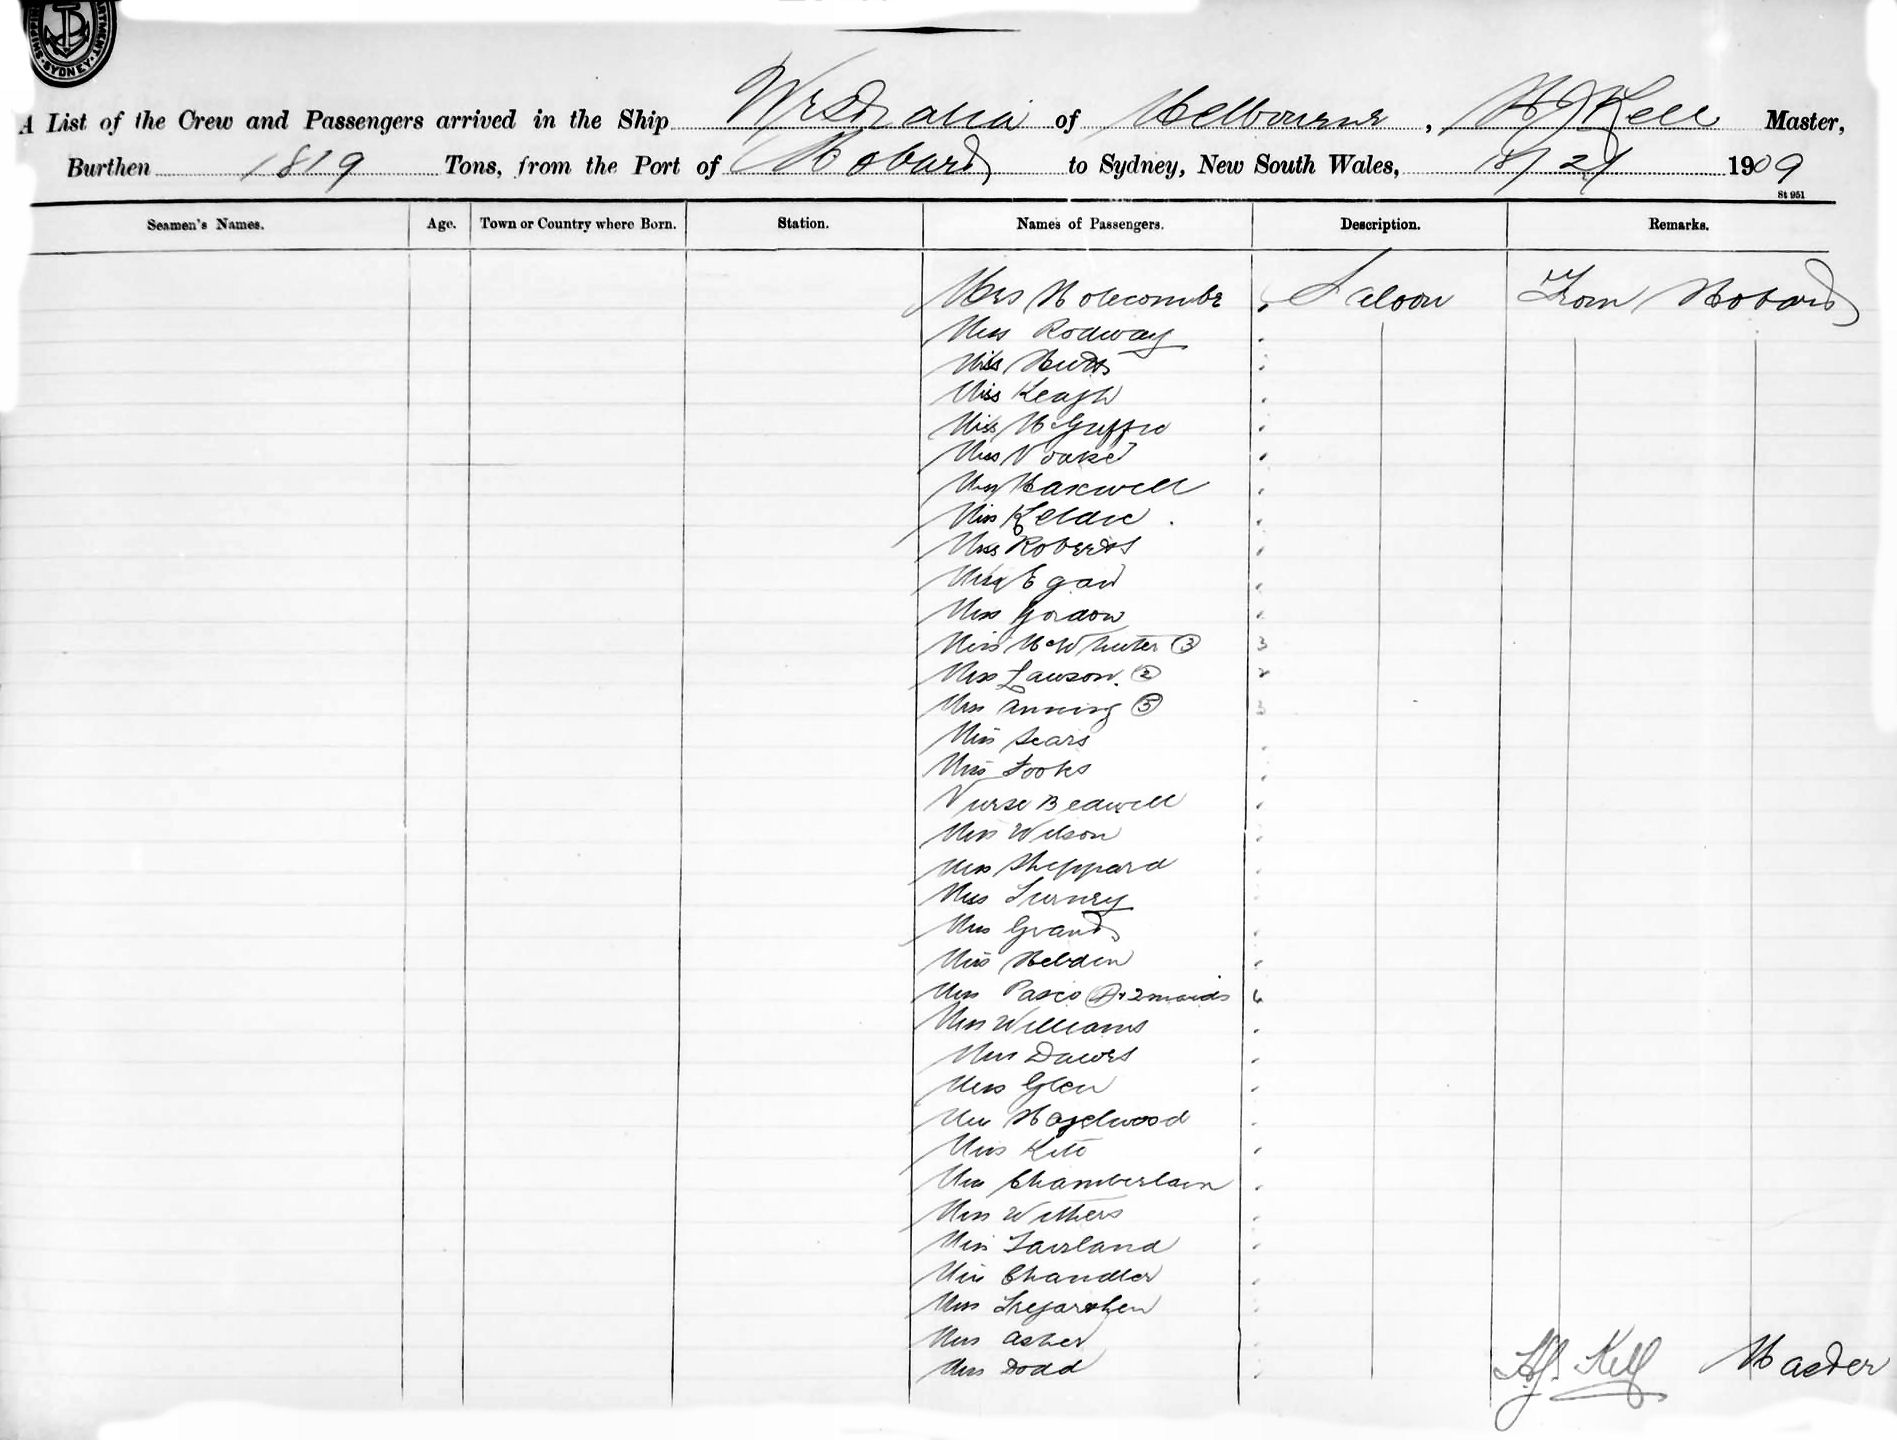 SYDNEY
A List of the Crew and Passengers arrived in the Ship Westralia of Melbourne, H J Kell Master,
Burthen 1819 Tons, from the Port of Hobart to Sydney, New South Wales, 1909
St 951
Seamen's Names. Age. Town or Country where Born. Station. Names of Passengers. Description. Remarks.
Mrs Holecombe Saloon From Hobart
Miss Rodway
Miss Butts
Miss Keagh
Miss
Miss
Miss Maxwell
Miss
Miss Roberts
Miss Egan
Miss Gordon
Miss McWhirter ③ 3
Miss Lawson. ② 2
Mrs Anning 3
Miss Sears
Miss Fooks
Nurse Bedwell
Miss Wilson
Miss Sheppard
Miss
Mrs Grant
Miss Hebden
Mrs Pasco + 2 maids
Mrs Williams
Mrs Dawes
Miss Glen
Hazelwood
Miss Kite
Mrs Chamberlain
Miss Withers
Miss Fairland
Miss Chandler
Mrs Tregarthen
Mrs Asher
Mrs Dodd
H.J. Kell Master